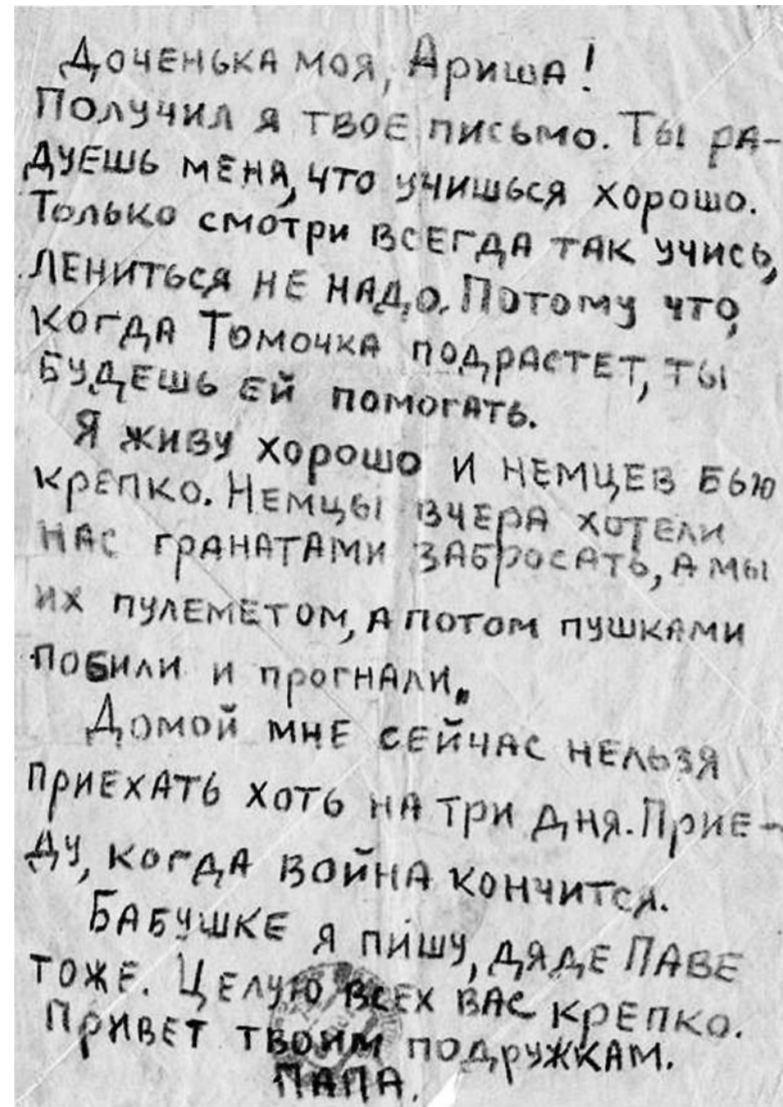 Доченька моя, Ариша!
Получил я твое письмо. Ты ра-
дуешь меня, что учишься хорошо.
Только смотри всегда так учись,
лениться не надо. Потому что,
когда Томочка подрастет, ты
будешь ей помогать.
Я живу хорошо и немцев бью
крепко. Немцы вчера хотели
нас гранатами забросать, а мы
их пулеметом, а потом пушками
побили и прогнали.
Домой мне сейчас нельзя
приехать хоть на три дня. Прие-
ду, когда война кончится.
Бабушке я пишу, дяде Паве
тоже. Целую всех вас крепко.
Привет твоим подружкам.
Папа.